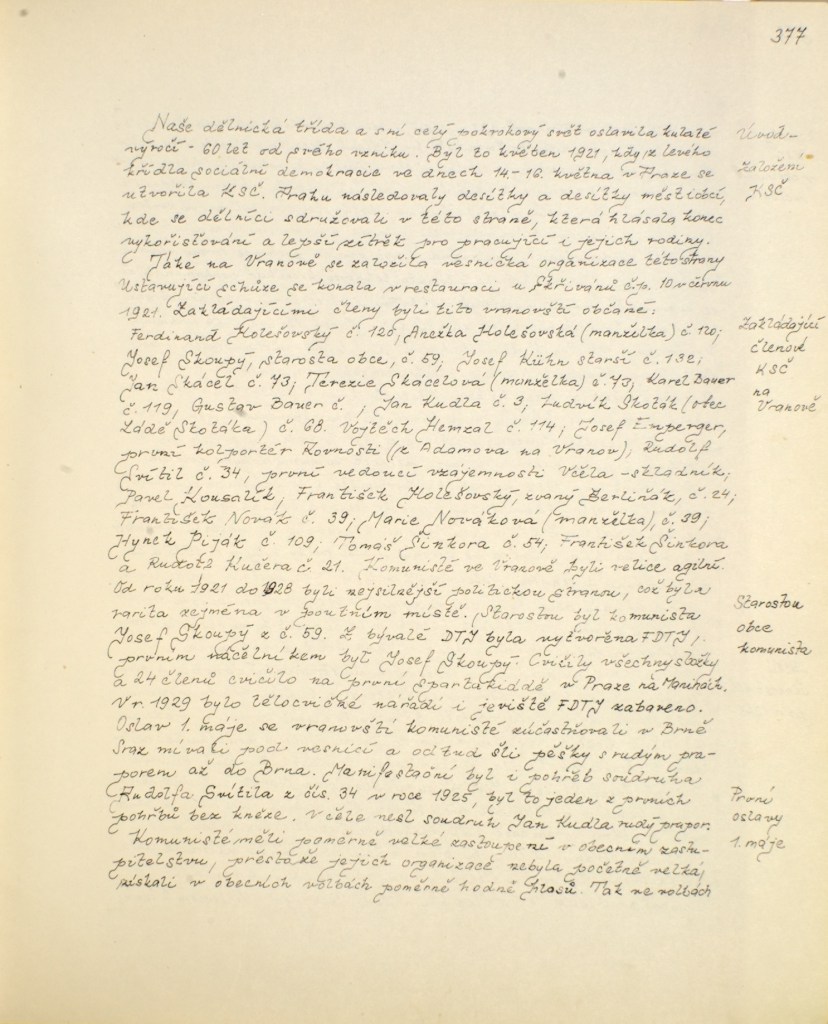 377
Naše dělnická třída a s ní celý pokrokový svět oslavila kulaté
výročí - 60 let od svého vzniku. Byl to květen 1921, kdy z levého
křídla sociální demokracie ve dnech 14.- 16. května v Praze se
utvořila KSČ. Prahu následovaly desítky a desítky měst i obcí,
kde se dělníci sdružovali v této straně, která hlásala konec
vykořisťování a lepší zítřek pro pracující i jejich rodiny.
Také na Vranově se založila vesnická organizace této strany
Ustavující schůze se konala v restauraci u Skřivánů č.p. 10 v červnu
1921. Zakládajícími členy byli tito vranovští občané:
Ferdinand Holešovský č. 120, Anežka Holešovská (manželka) č. 120;
Josef Skoupý, starosta obce, č. 59; Josef Kühn starší č. 132;
Jan Skácel č. 73; Terezie Skácelová (manželka) č. 73, Karel Bauer
č. 119, Gustav Bauer č. , Jan Kudla č. 3, Ludvík Skoták (otec
Ládě Skotáka) č. 68. Vojtěch Hemzal č. 114; Josef Emperger,
první kolportér Rovnosti (z Adamova na Vranov), Rudolf
Svítil č. 34, první vedoucí vzájemnosti Včela - skladník;
Pavel Kousalík, František Holešovský, zvaný Berliňák, č. 24;
František Novák č. 39; Marie Nováková (manželka), č. 39;
Hynek Piják č. 109; Tomáš Šinkora č. 54; František Šinkora
a Rudolf Kučera č. 21. Komunisté ve Vranově byli velice agilní.
Od roku 1921 do 1928 byli nejsilnější politickou stranou, což byla
rarita zejména v poutním místě. Starostou byl komunista
Josef Skoupý z č. 59. Z bývalé DTJ byla vytvořena FDTJ,
prvním náčelníkem byl Josef Skoupý. Cvičily všechny složky
a 24 členů cvičilo na první Spartakiádě v Praze na Maninách.
V r. 1929 bylo tělocvičné nářadí i jeviště FDTJ zabaveno.
Oslav 1. máje se vranovští komunisté zúčastňovali v Brně
Sraz mívali pod vesnicí a odtud šli pěšky s rudým pra-
porem až do Brna. Manifestační byl i pohřeb soudruha
Rudolfa Svítila z čís. 34 v roce 1925, byl to jeden z prvních
pohřbů bez kněze. V čele nesl soudruh Jan Kudla rudý prapor.
Komunisté měli poměrně velké zastoupení v obecním zastu-
pitelstvu, přestože jejich organizace nebyla početně velká,
získali v obecních volbách poměrně hodně hlasů. Tak ve volbách
Úvod-
založení
KSČ
Zakládající
členové
KSČ
na
Vranově
Starostou
obce
komunista
První
oslavy
1. máje